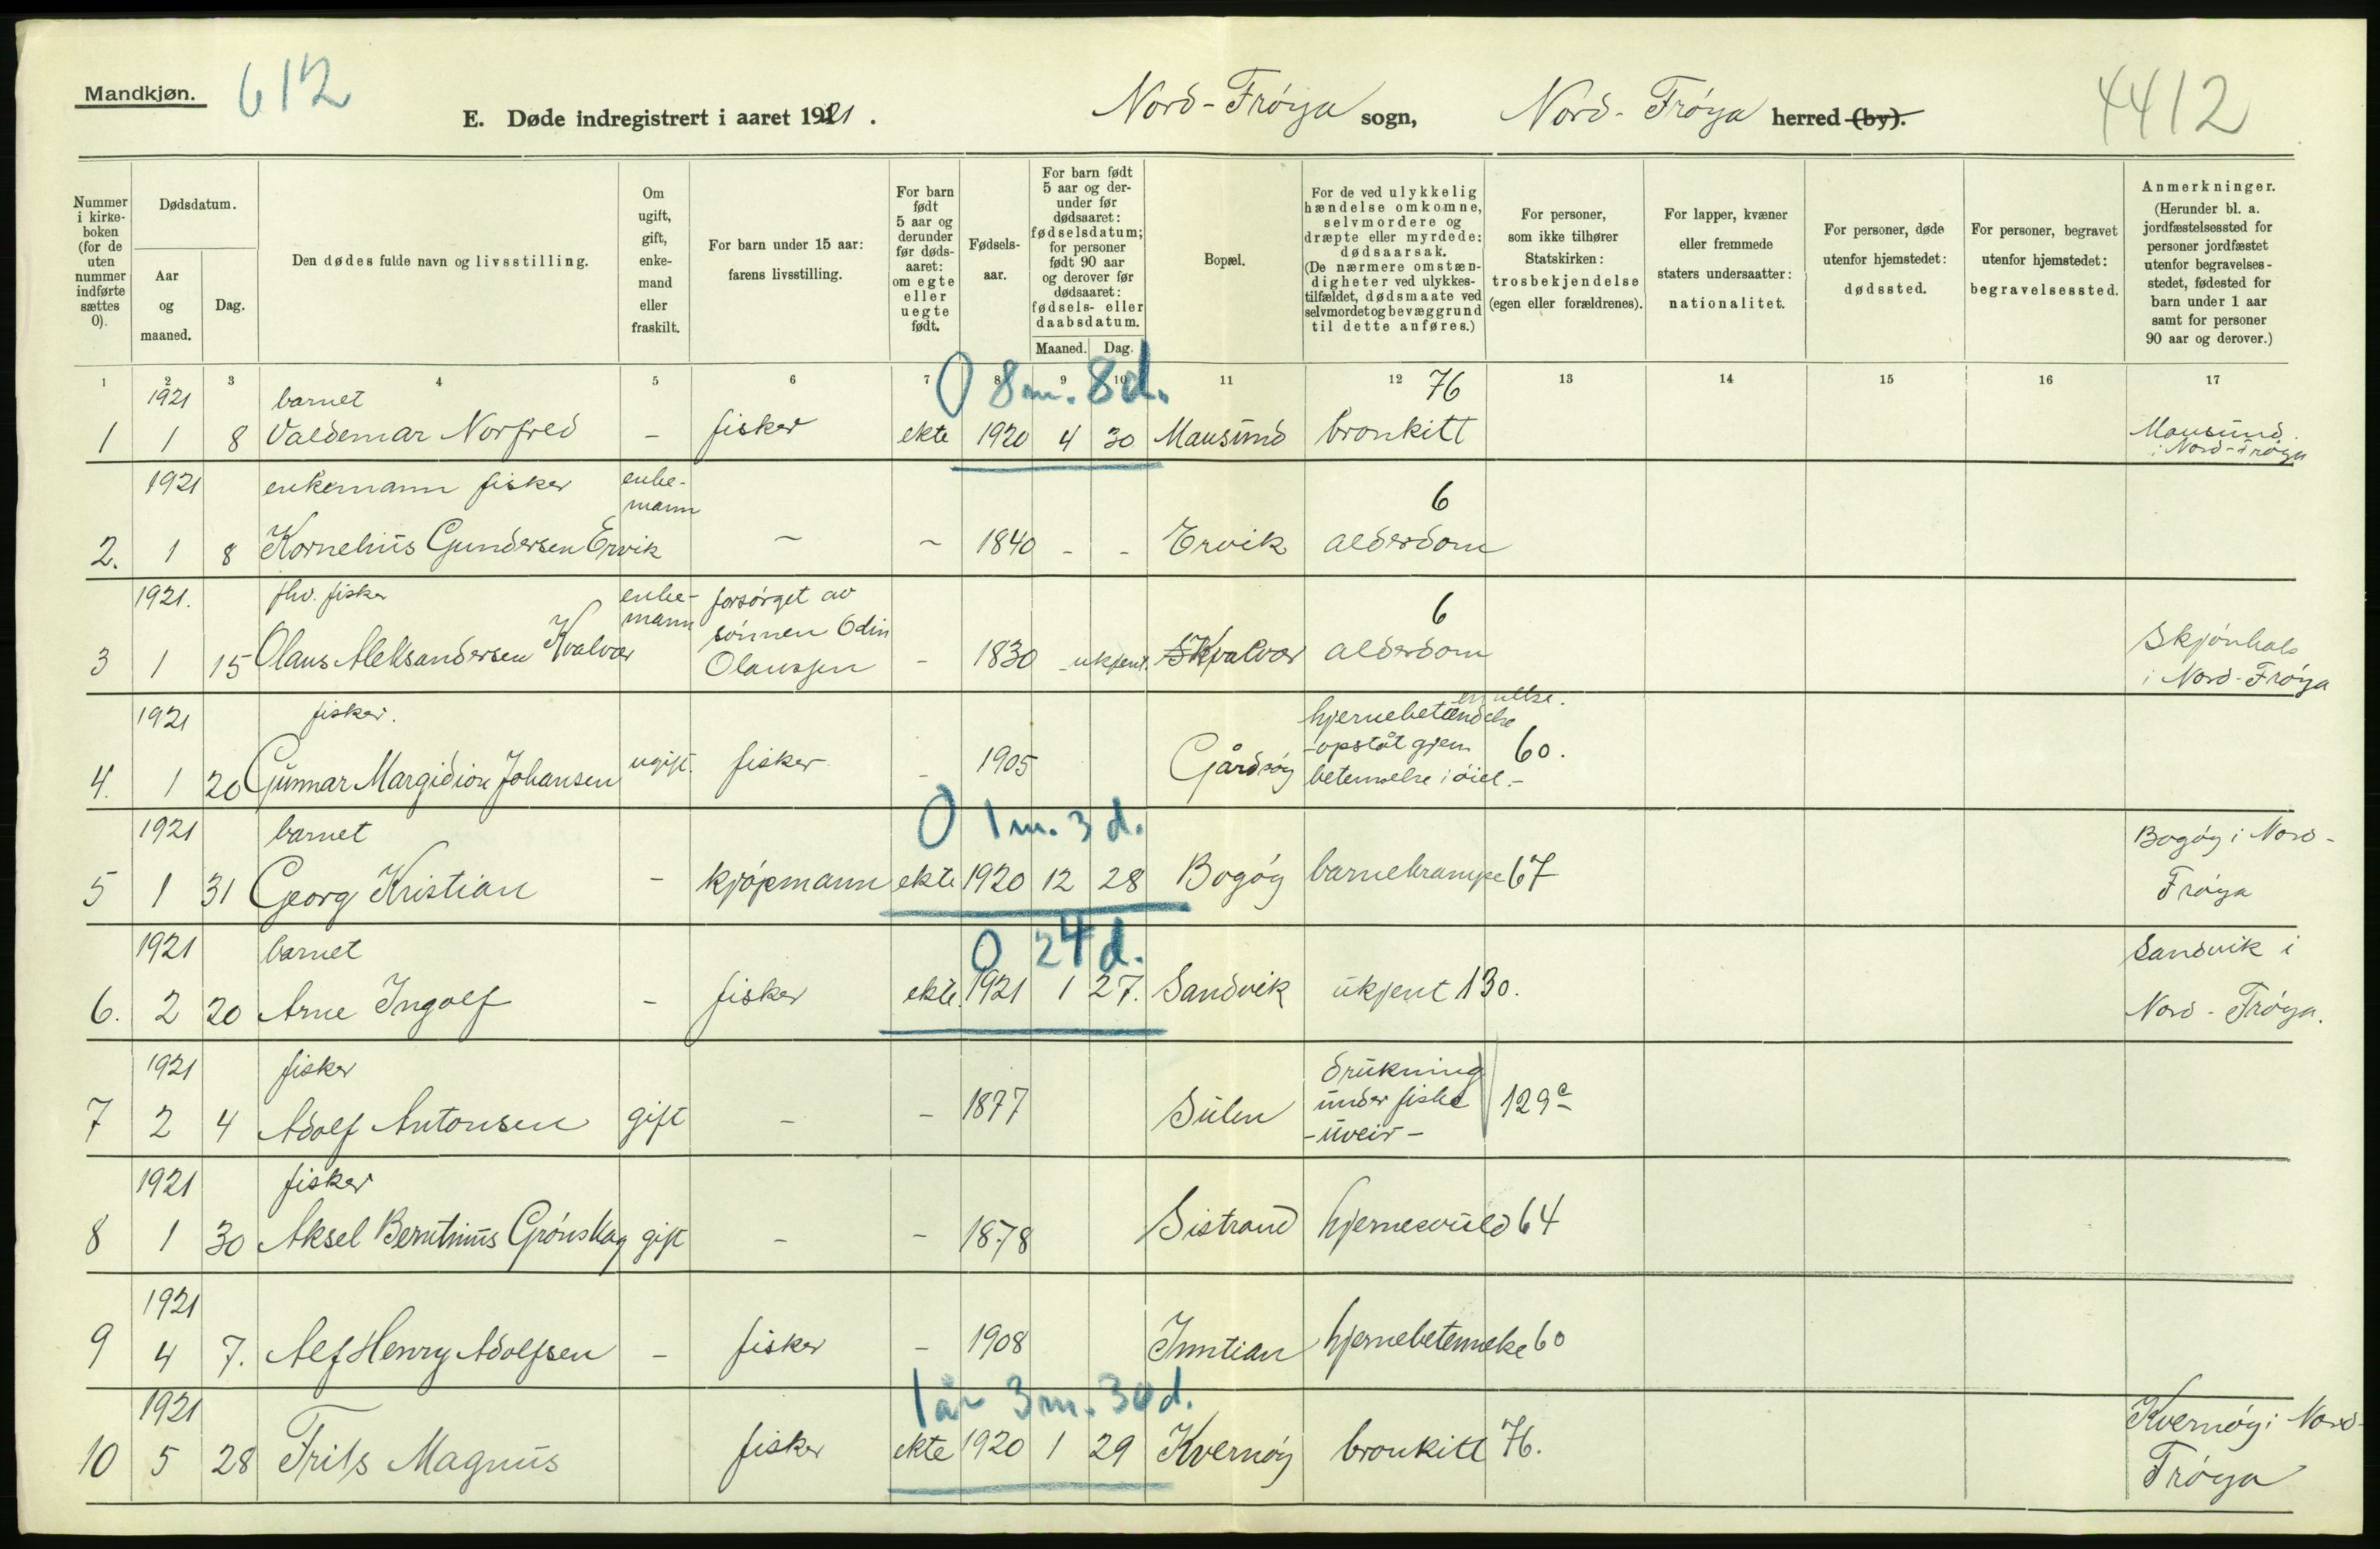 Mandkjøn. 612
E. Døde indregistrert i aaret 1921. Nord-Frøya sogn, Nord-Frøya herred (by). 4412
Nummer i kirkeboken (for de uten nummer indførte sættes 0).
Dødsdatum.
Aar og maaned.
Dag.
Den dødes fulde navn og livsstilling.
Om ugift, gift, enkemand eller fraskilt.
For barn under 15 aar: farens livsstilling.
For barn født 5 aar og derunder før dødsaaret: om egte eller uegte født.
Fødselsaar.
For barn født 5 aar og derunder før dødsaaret: fødselsdatum; for personer født 90 aar og derover før dødsaaret: fødsels- eller daabsdatum.
Maaned. Dag.
Bopæl.
For de ved ulykkelig hændelse omkomne, selvmordere og dræpte eller myrdede: dødsaarsak. (De nærmere omstændigheter ved ulykkestilfældet, dødsmaate ved selvmordet og bevæggrund til dette anføres.)
For personer, som ikke tilhører Statskirken: trosbekjendelse (egen eller forældrenes).
For lapper, kvæner eller fremmede staters undersaatter: nationalitet.
For personer, døde utenfor hjemstedet: dødssted.
For personer, begravet utenfor hjemstedet: begravelsessted.
Anmerkninger. (Herunder bl. a. jordfæstelsessted for personer jordfæstet utenfor begravelsesstedet, fødested for barn under 1 aar samt for personer 90 aar og derover.)
1 2 3 4 5 6 7 8 9 10 11 12 13 14 15 16 17
1921 barnet 0 8 m. 8 d. 76
1 1 8 Valdemar Norfred – fisker ekte 1920 4 30 Mausund bronkitt Mausund i Nord-Frøya
1921 enkemann fisker enke-mann 6
2. 1 8 Kornelius Gundersen Ervik ~ ~ 1840 - - Ervik alderdom
1921. fhv. fisker enke-mann forsørget av sønnen Odin 6
3 1 15 Olaus Aleksandersen Kvalvær Olaussen – 1830 - ukjent. Kvalvær alderdom Skjønhals i Nord-Frøya
1921 fisker. hjernebetændelse
4. 1 20 Gunnar Margidion Johansen ugift. fisker – 1905 Gårdsøy -opståt gjen. betennelse i øiet.- 60.
1921 barnet 0 1 m. 3 d. Bogøy i Nord-
5 1 31 Georg Kristian – kjøpmann ekte 1920 12 28 Bogøy barnekrampe 67 Frøya
1921 barnet 0 24 d. Sandvik i
6. 2 20 Arne Ingolf – fisker ekte. 1921 1 27. Sandvik ukjent 130. Nord-Frøya.
1921 fisker drukning
7 2 4 Adolf Antonsen gift – – 1877 Sulen under fiske -uveir- 129c
1921 fisker
8 1 30 Aksel Berntinus Grønskag gift – – 1878 Sistrand hjernesvuld 64
1921
9 4 7. Alf Henry Adolfsen – fisker – 1908 Inntian hjernebetennelse 60
1921 1 år 3 m. 30 d. Kvernøy i Nord-
10 5 28 Frits Magnus fisker ekte 1920 1 29 Kvernøy bronkitt 76. Frøya